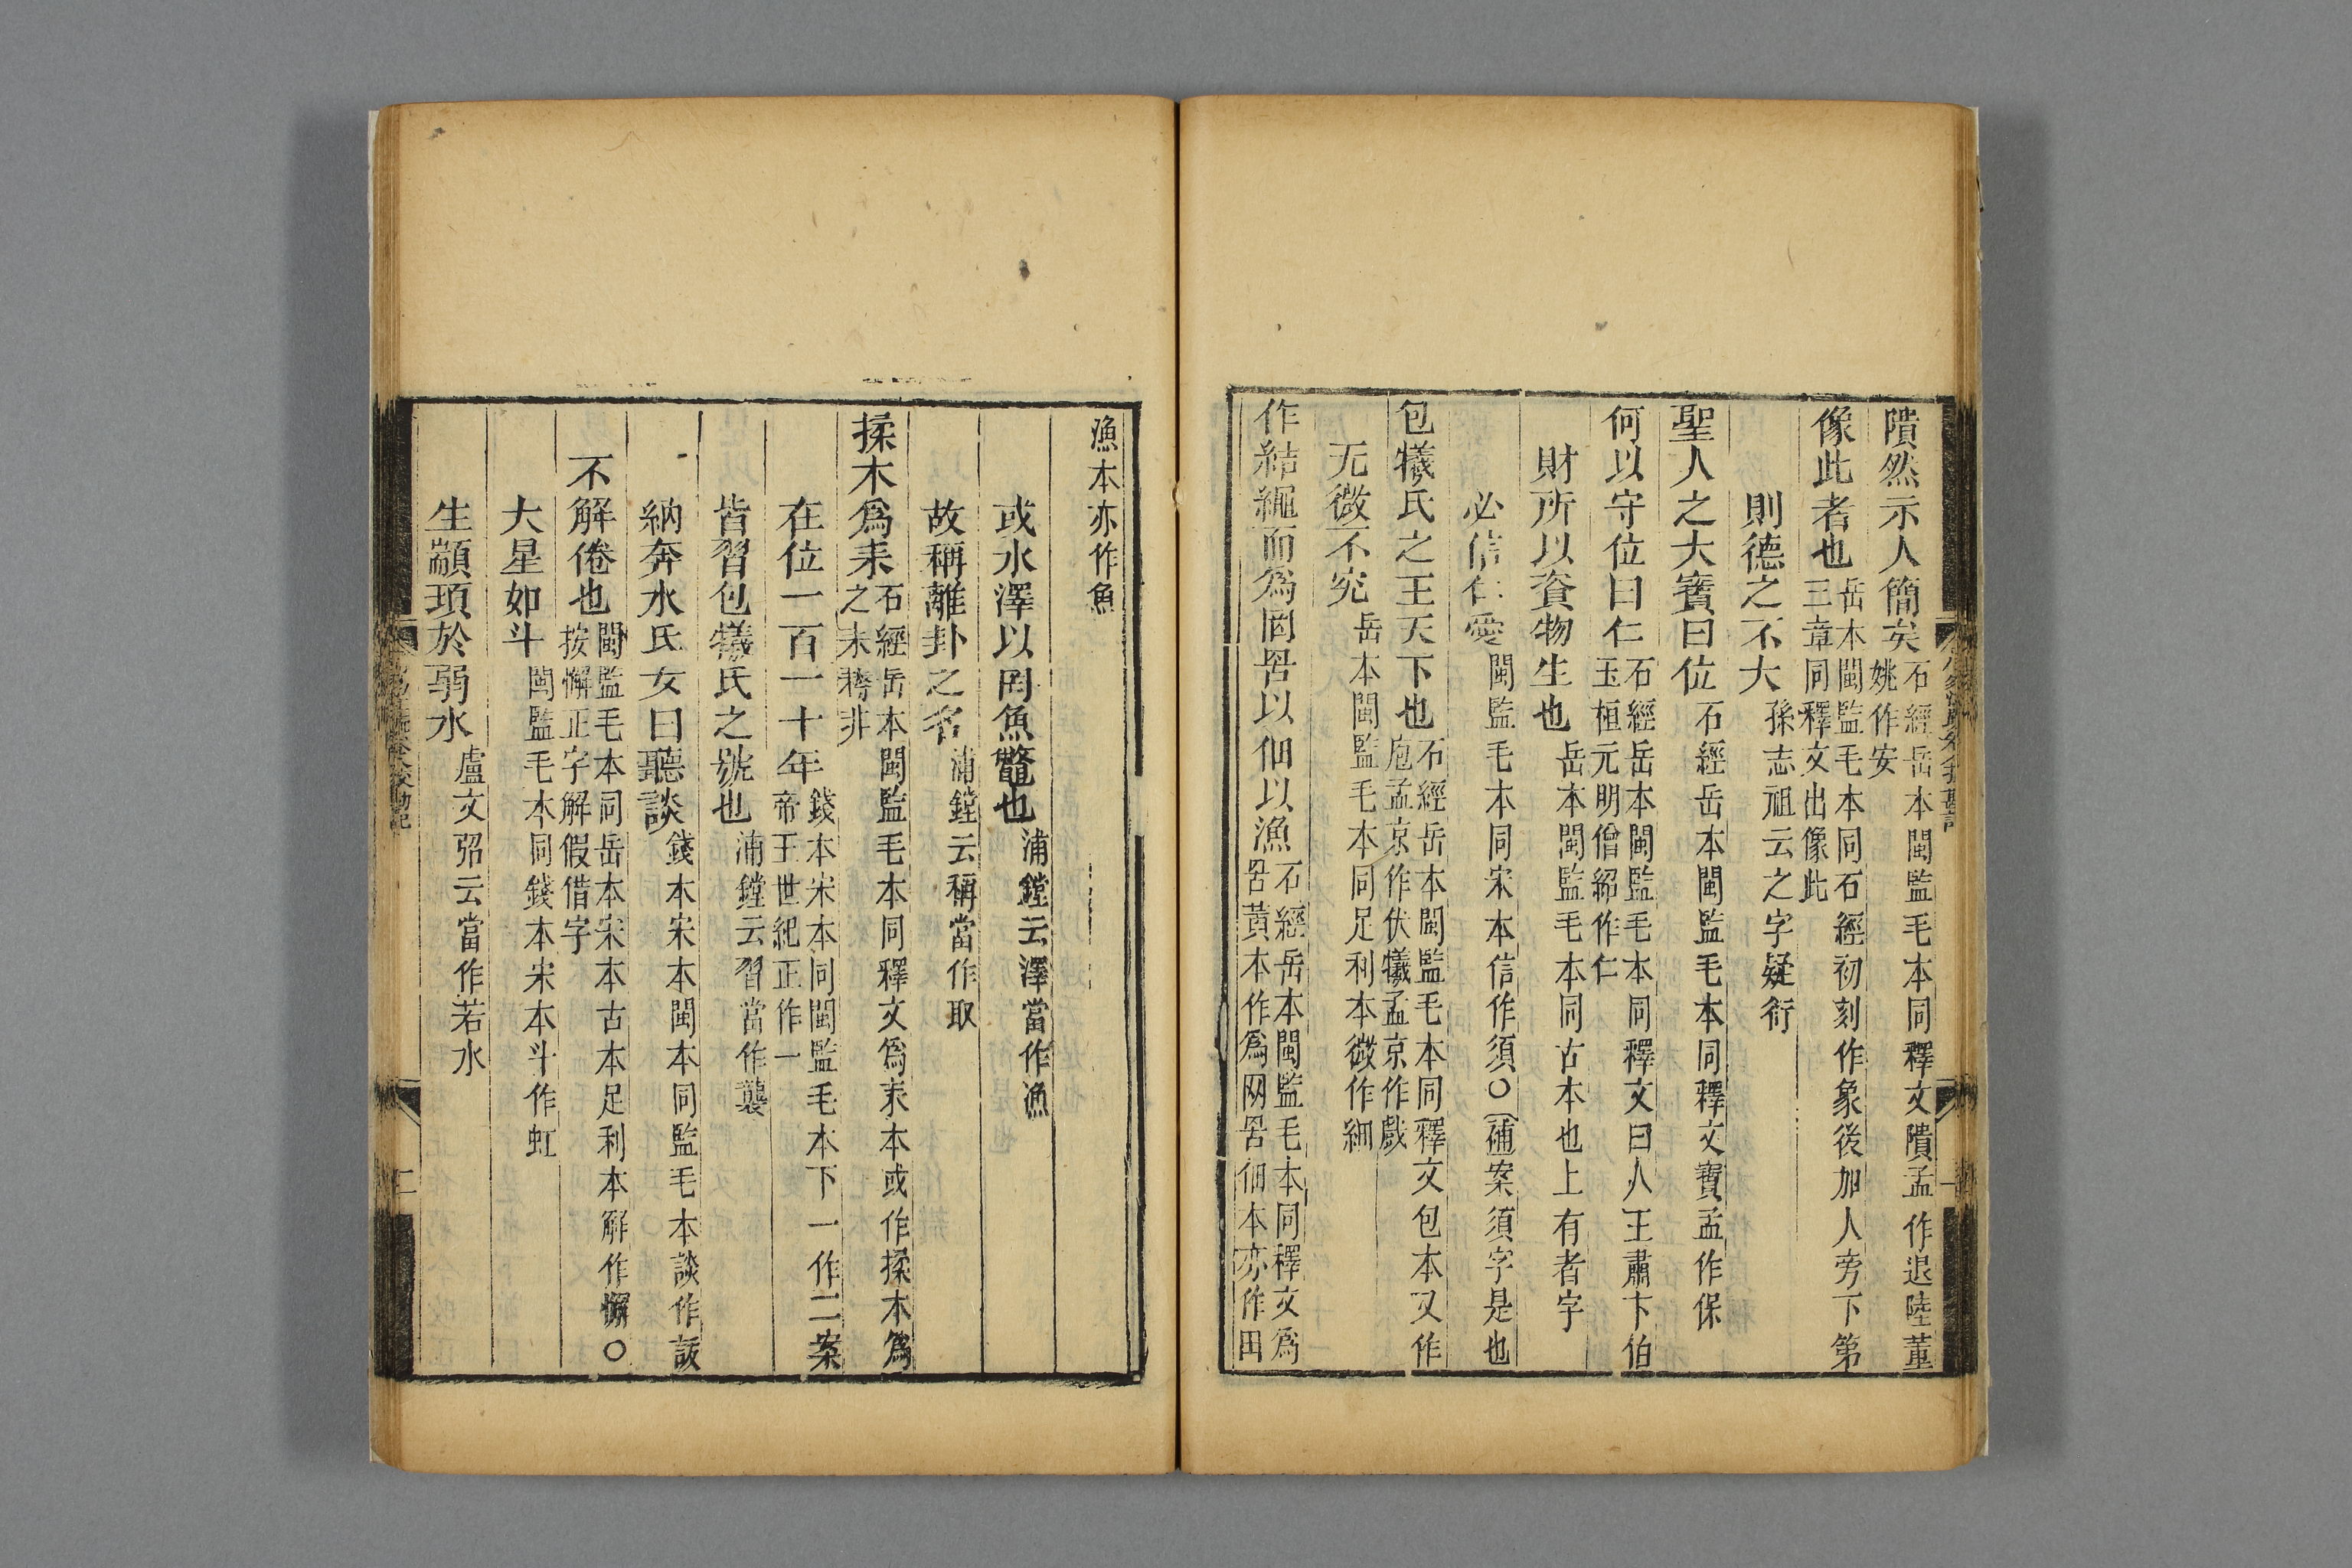 隤然示人簡矣石經岳本閩監毛本同釋文隤孟作退陸董姚作安
像此者也岳本閩監毛本同石經初刻作象後加人旁下第三章同釋文出像此
則德之不大孫志祖云之字疑衍
聖人之大寶曰位石經岳本閩監毛本同釋文寶孟作保
何以守位曰仁石經岳本閩監毛本同釋文曰人王肅卞伯玉桓元明僧紹作仁
財所以資物生也岳本閩監毛本同古本也上有者字
必信仁愛閩監毛本同宋本信作須○補案須字是也
包犧氏之王天下也石經岳本閩監毛本同釋文包本又作庖孟京作伏犧孟京作戲
无微不究岳本閩監毛本同足利本微作細
作結繩而爲罔罟以佃以漁石經岳本閩監毛本同釋文爲罟黃本作爲网罟佃本亦作田
漁本亦作魚
或水澤以罔魚鼈也浦鏜云澤當作漁
故稱離卦之名浦鏜云稱當作取
揉木爲耒石經岳本閩監毛本同釋文爲耒本或作揉木爲之耒耨非
在位一百一十年錢本宋本同閩監毛本下一作二案帝王世紀正作一
皆習包犧氏之號也浦鏜云習當作襲
納奔水氏女曰聽談錢本宋本閩本同監毛本談作詼
不解倦也閩監毛本同岳本宋本古本足利本解作懈○按懈正字解假借字
大星如斗閩監毛本同錢本宋本斗作虹
生顓頊於弱水盧文弨云當作若水
二